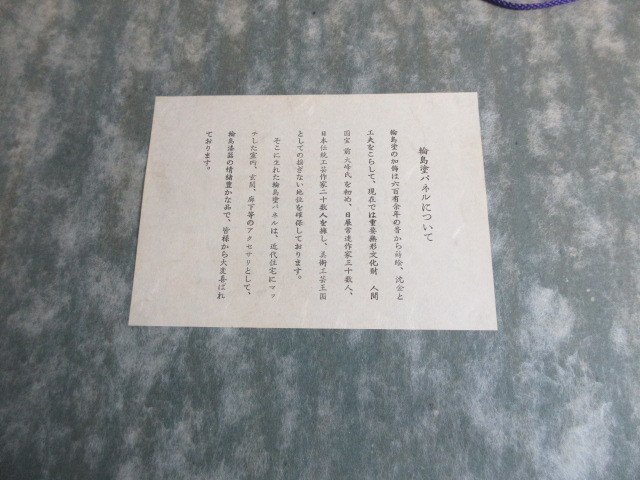 輪島塗パネルについて
輪島塗の加飾は六百有余年の昔から蒔絵、沈金と
工夫をこらして、現在では重要無形文化財 人間
国宝 前大峰氏を初め、日展常連作家三十数人、
日本伝統工芸作家二十数人を擁し、美術工芸王国
としての揺ぎない地位を確保しております。
そこに生れた輪島塗パネルは、近代住宅にマッ
チした室内、玄関、廊下等のアクセサリとして、
輪島漆器の情緒豊かな品で、皆様から大変喜ばれ
ております。